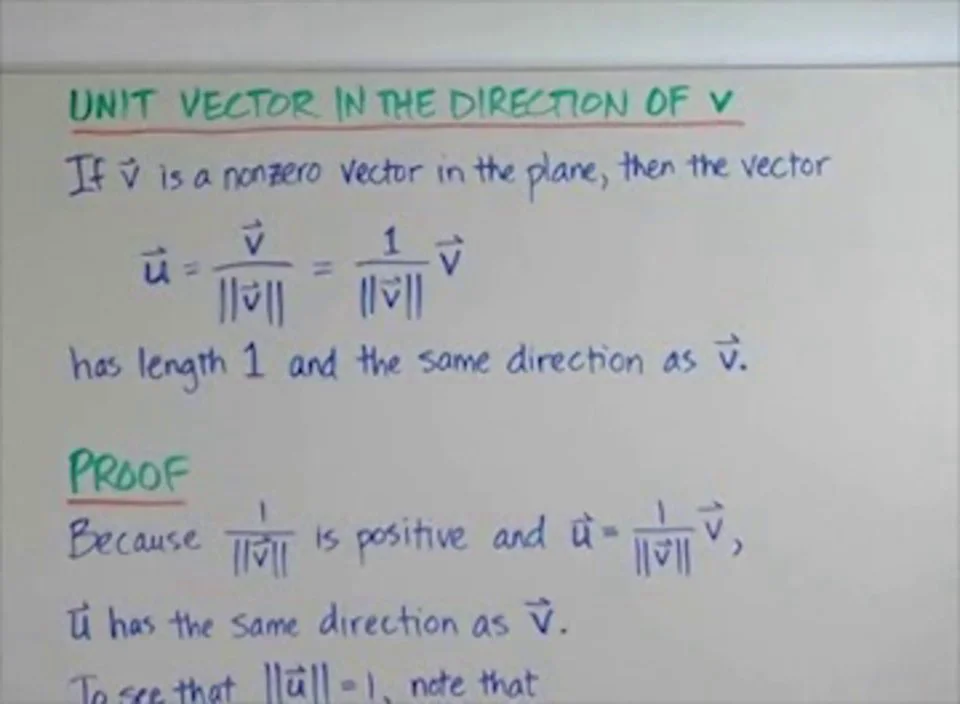 UNIT VECTOR IN THE DIRECTION OF v
If v⃗ is a nonzero vector in the plane, then the vector
u⃗ = v⃗ / ||v⃗|| = 1 / ||v⃗|| v⃗
has length 1 and the same direction as v⃗.
PROOF
Because 1 / ||v⃗|| is positive and u⃗ = 1 / ||v⃗|| v⃗,
u⃗ has the same direction as v⃗.
To see that ||u⃗|| = 1, note that